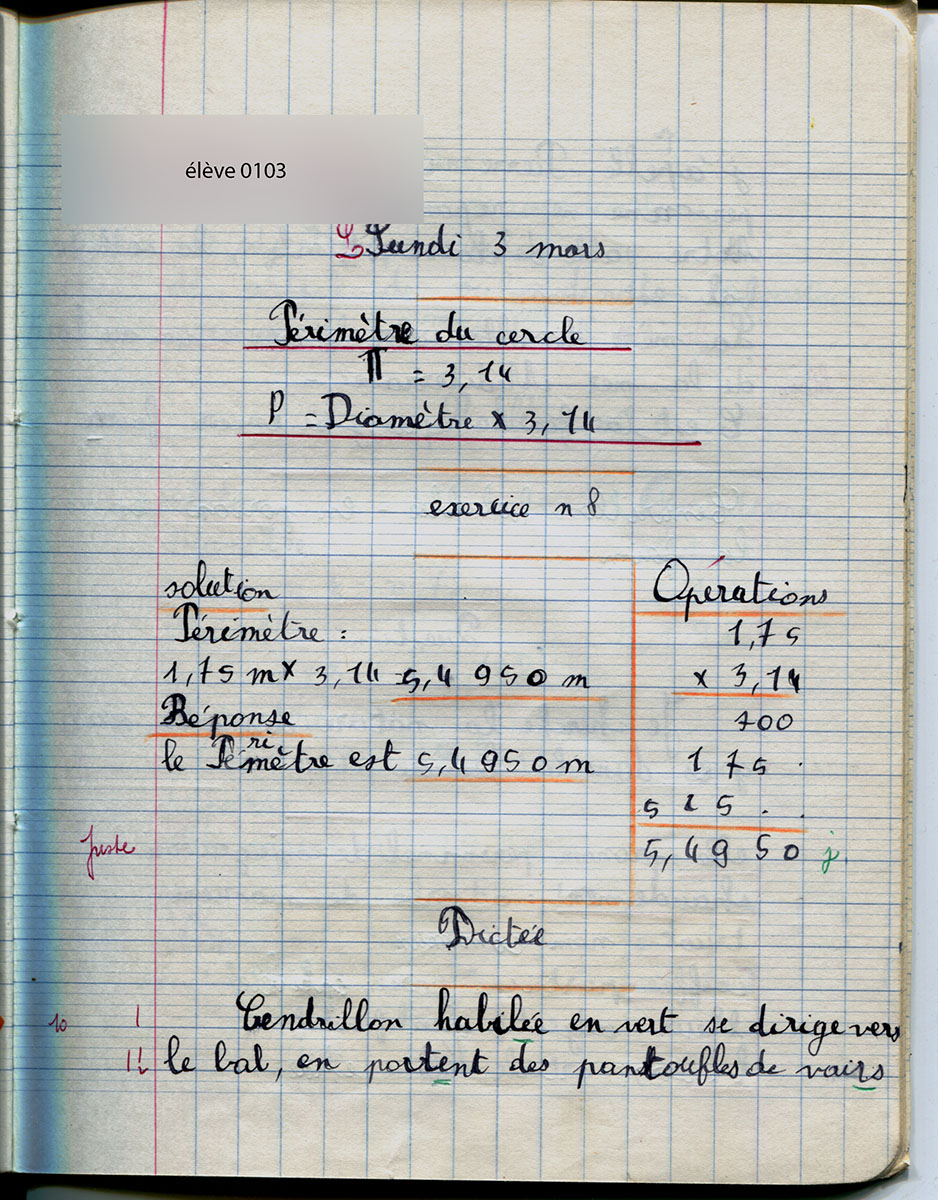 élève 0103
Lundi 3 mars
Périmètre du cercle
π = 3,14
P = Diamètre x 3,14
exercice n 8
solution
Périmètre :
1,75 m x 3,14 5,4950 m
Réponse
le Périmètre est 5,4950 m
Opérations
1,75
x 3,14
700
175 .
525 . .
5,4950 j
Juste
Dictée
10 | Cendrillon habilée en vert se dirige vers
|| le bal, en portent des pantoufles de vairs